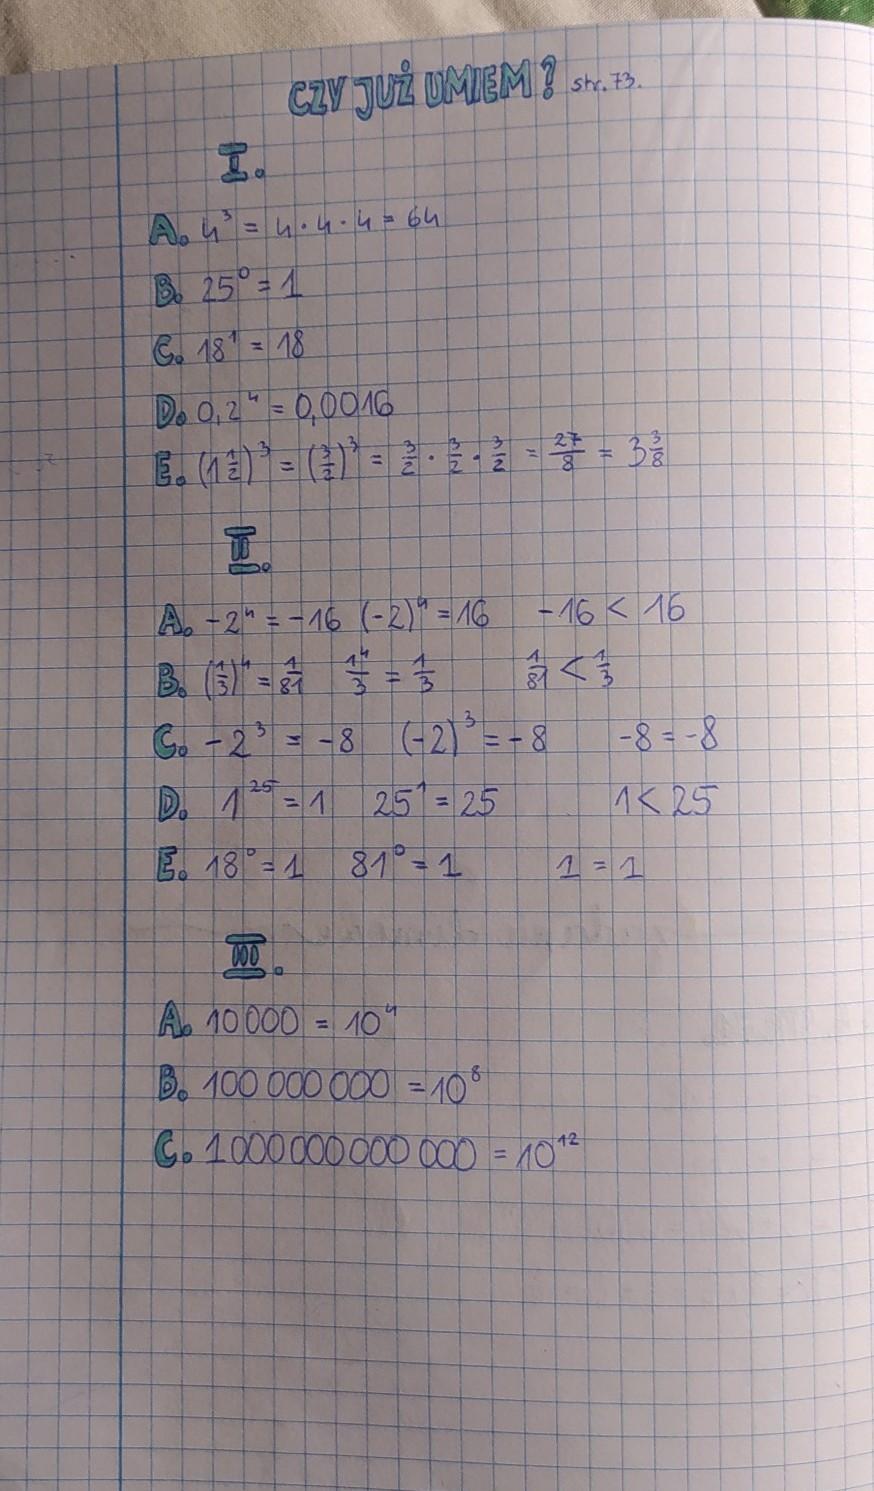 CZY JUŻ UMIEM? str. 73.
I.
A. 4³ = 4 · 4 · 4 = 64
B. 25⁰ = 1
C. 18¹ = 18
D. 0,2⁴ = 0,0016
E. (1 1/2)³ = (3/2)³ = 3/2 · 3/2 · 3/2 = 27/8 = 3 3/8
II.
A. -2⁴ = -16 (-2)⁴ = 16 -16 < 16
B. (1/3)⁴ = 1/81 1⁴/3 = 1/3 1/81 < 1/3
C. -2³ = -8 (-2)³ = -8 -8 = -8
D. 1²⁵ = 1 25¹ = 25 1 < 25
E. 18⁰ = 1 81⁰ = 1 1 = 1
III.
A. 10 000 = 10⁴
B. 100 000 000 = 10⁸
C. 1000000000 000 = 10¹²